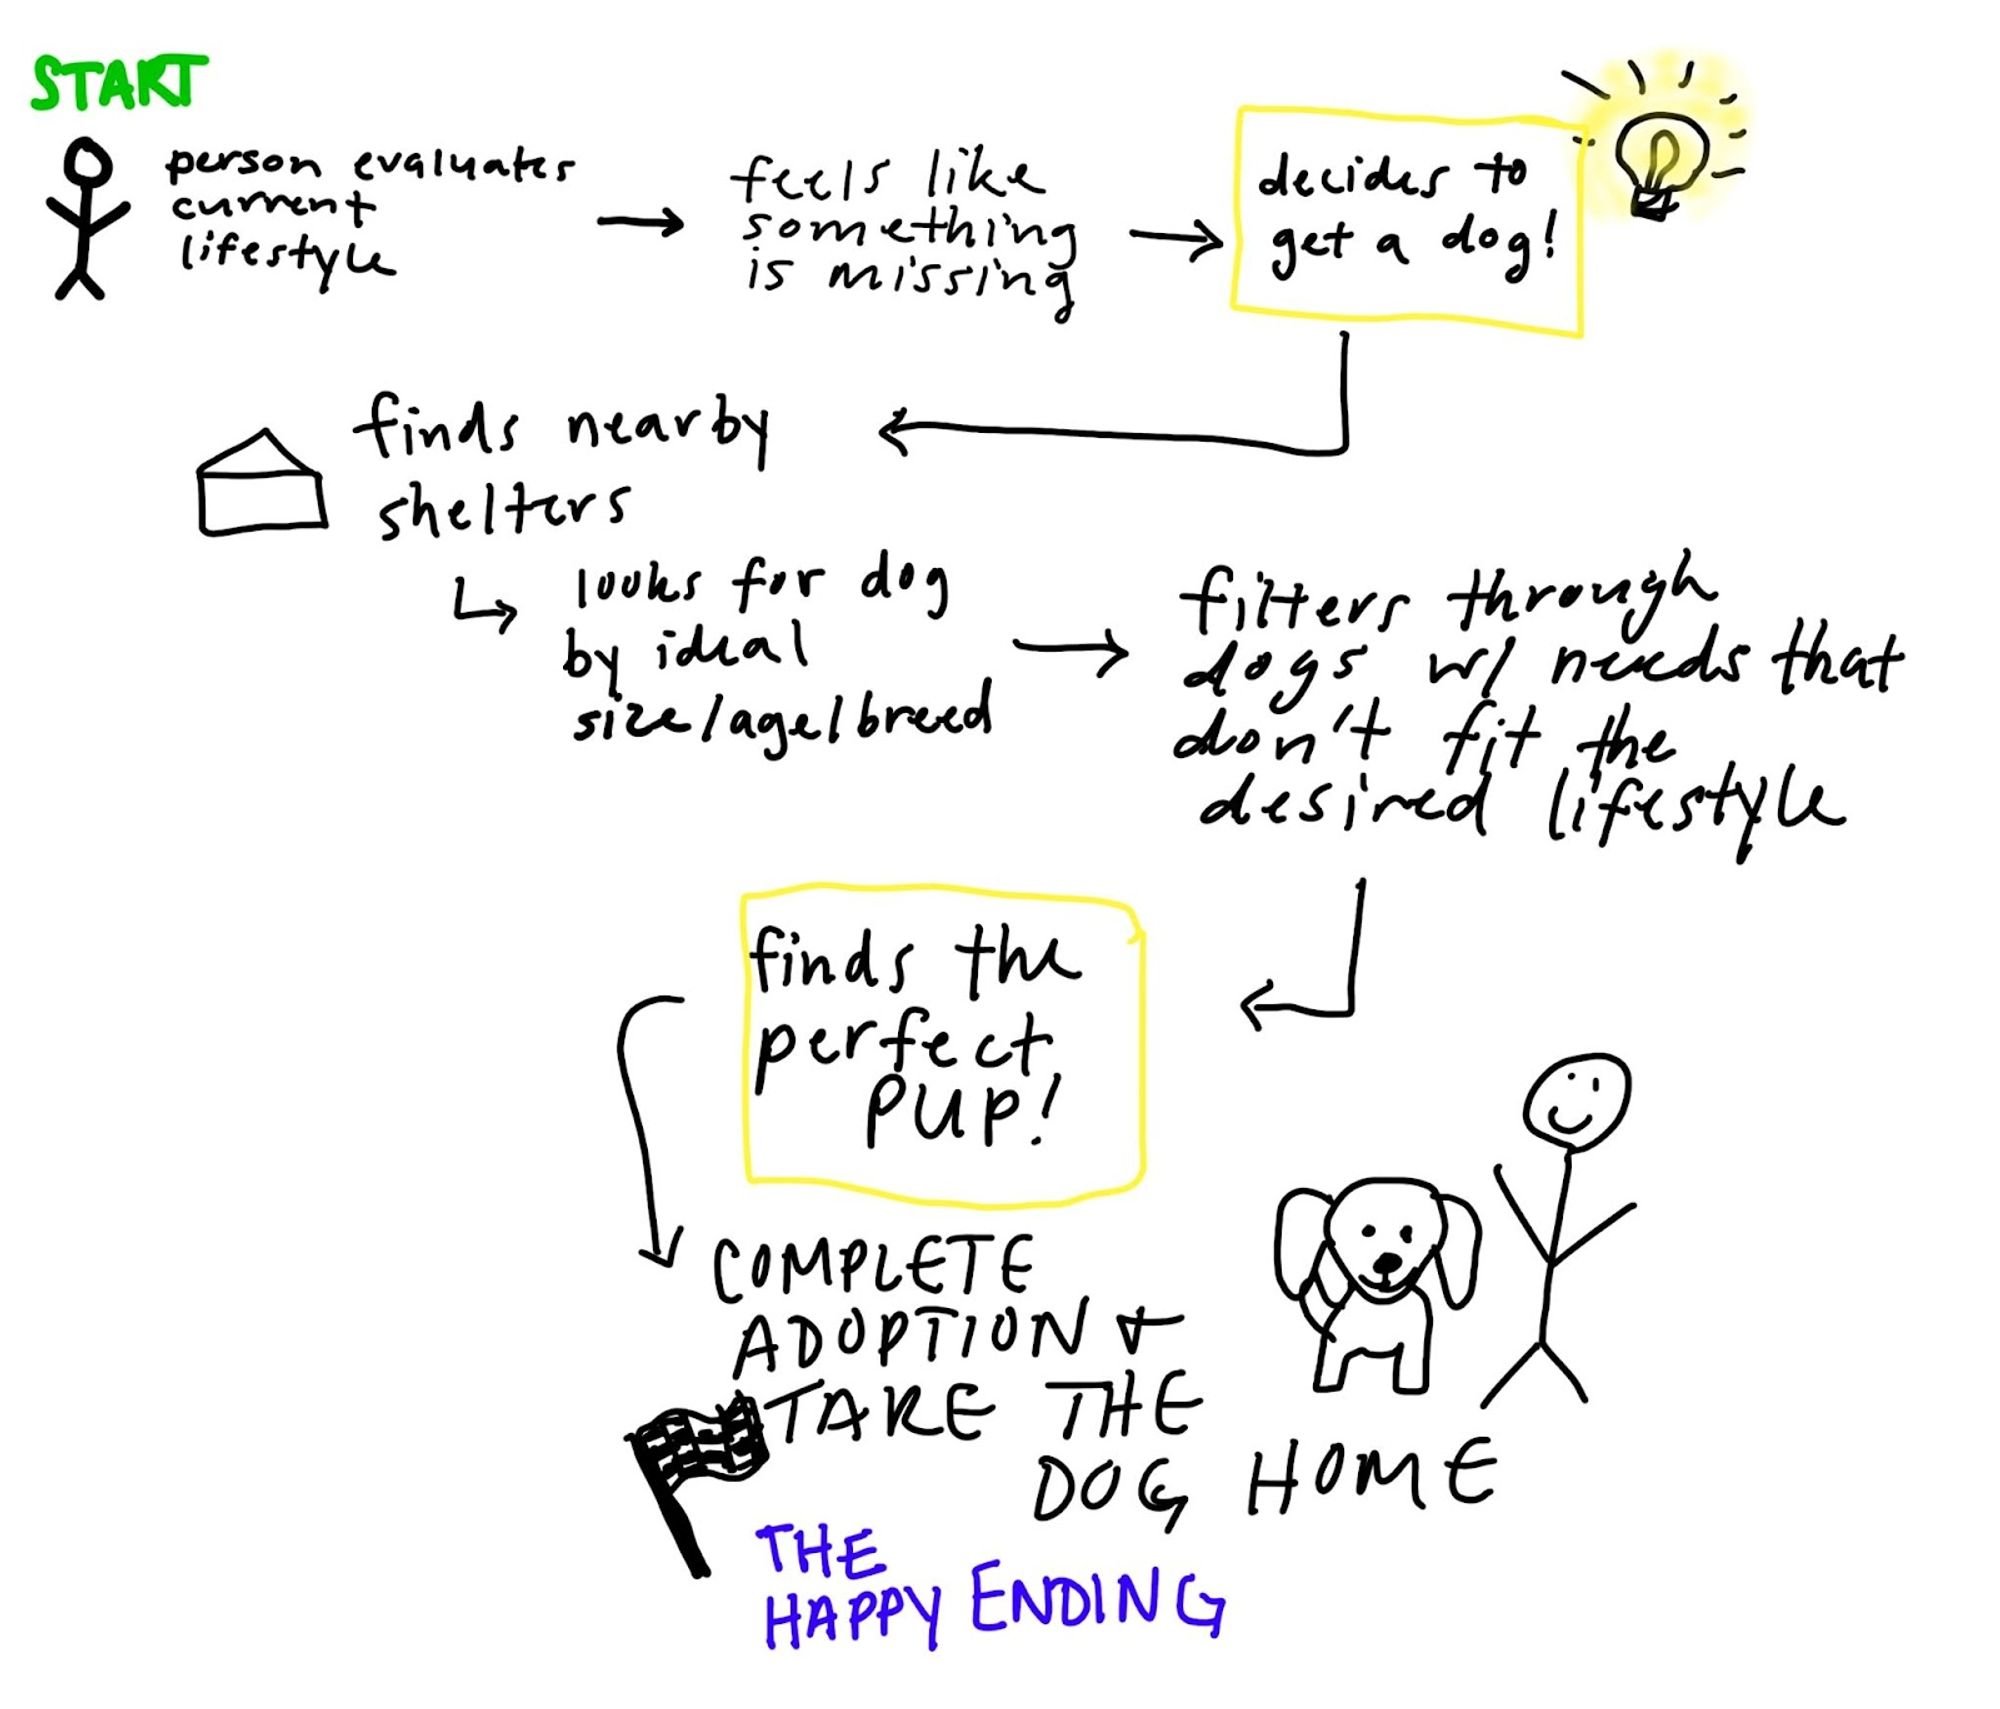 START
person evaluates
current
lifestyle
feels like
something
is missing
decides to
get a dog!
finds nearby
shelters
looks for dog
by ideal
size/age/breed
filters through
dogs w/ needs that
don't fit the
desired lifestyle
finds the
perfect
PUP!
COMPLETE
ADOPTION +
TAKE THE
DOG HOME
THE
HAPPY ENDING